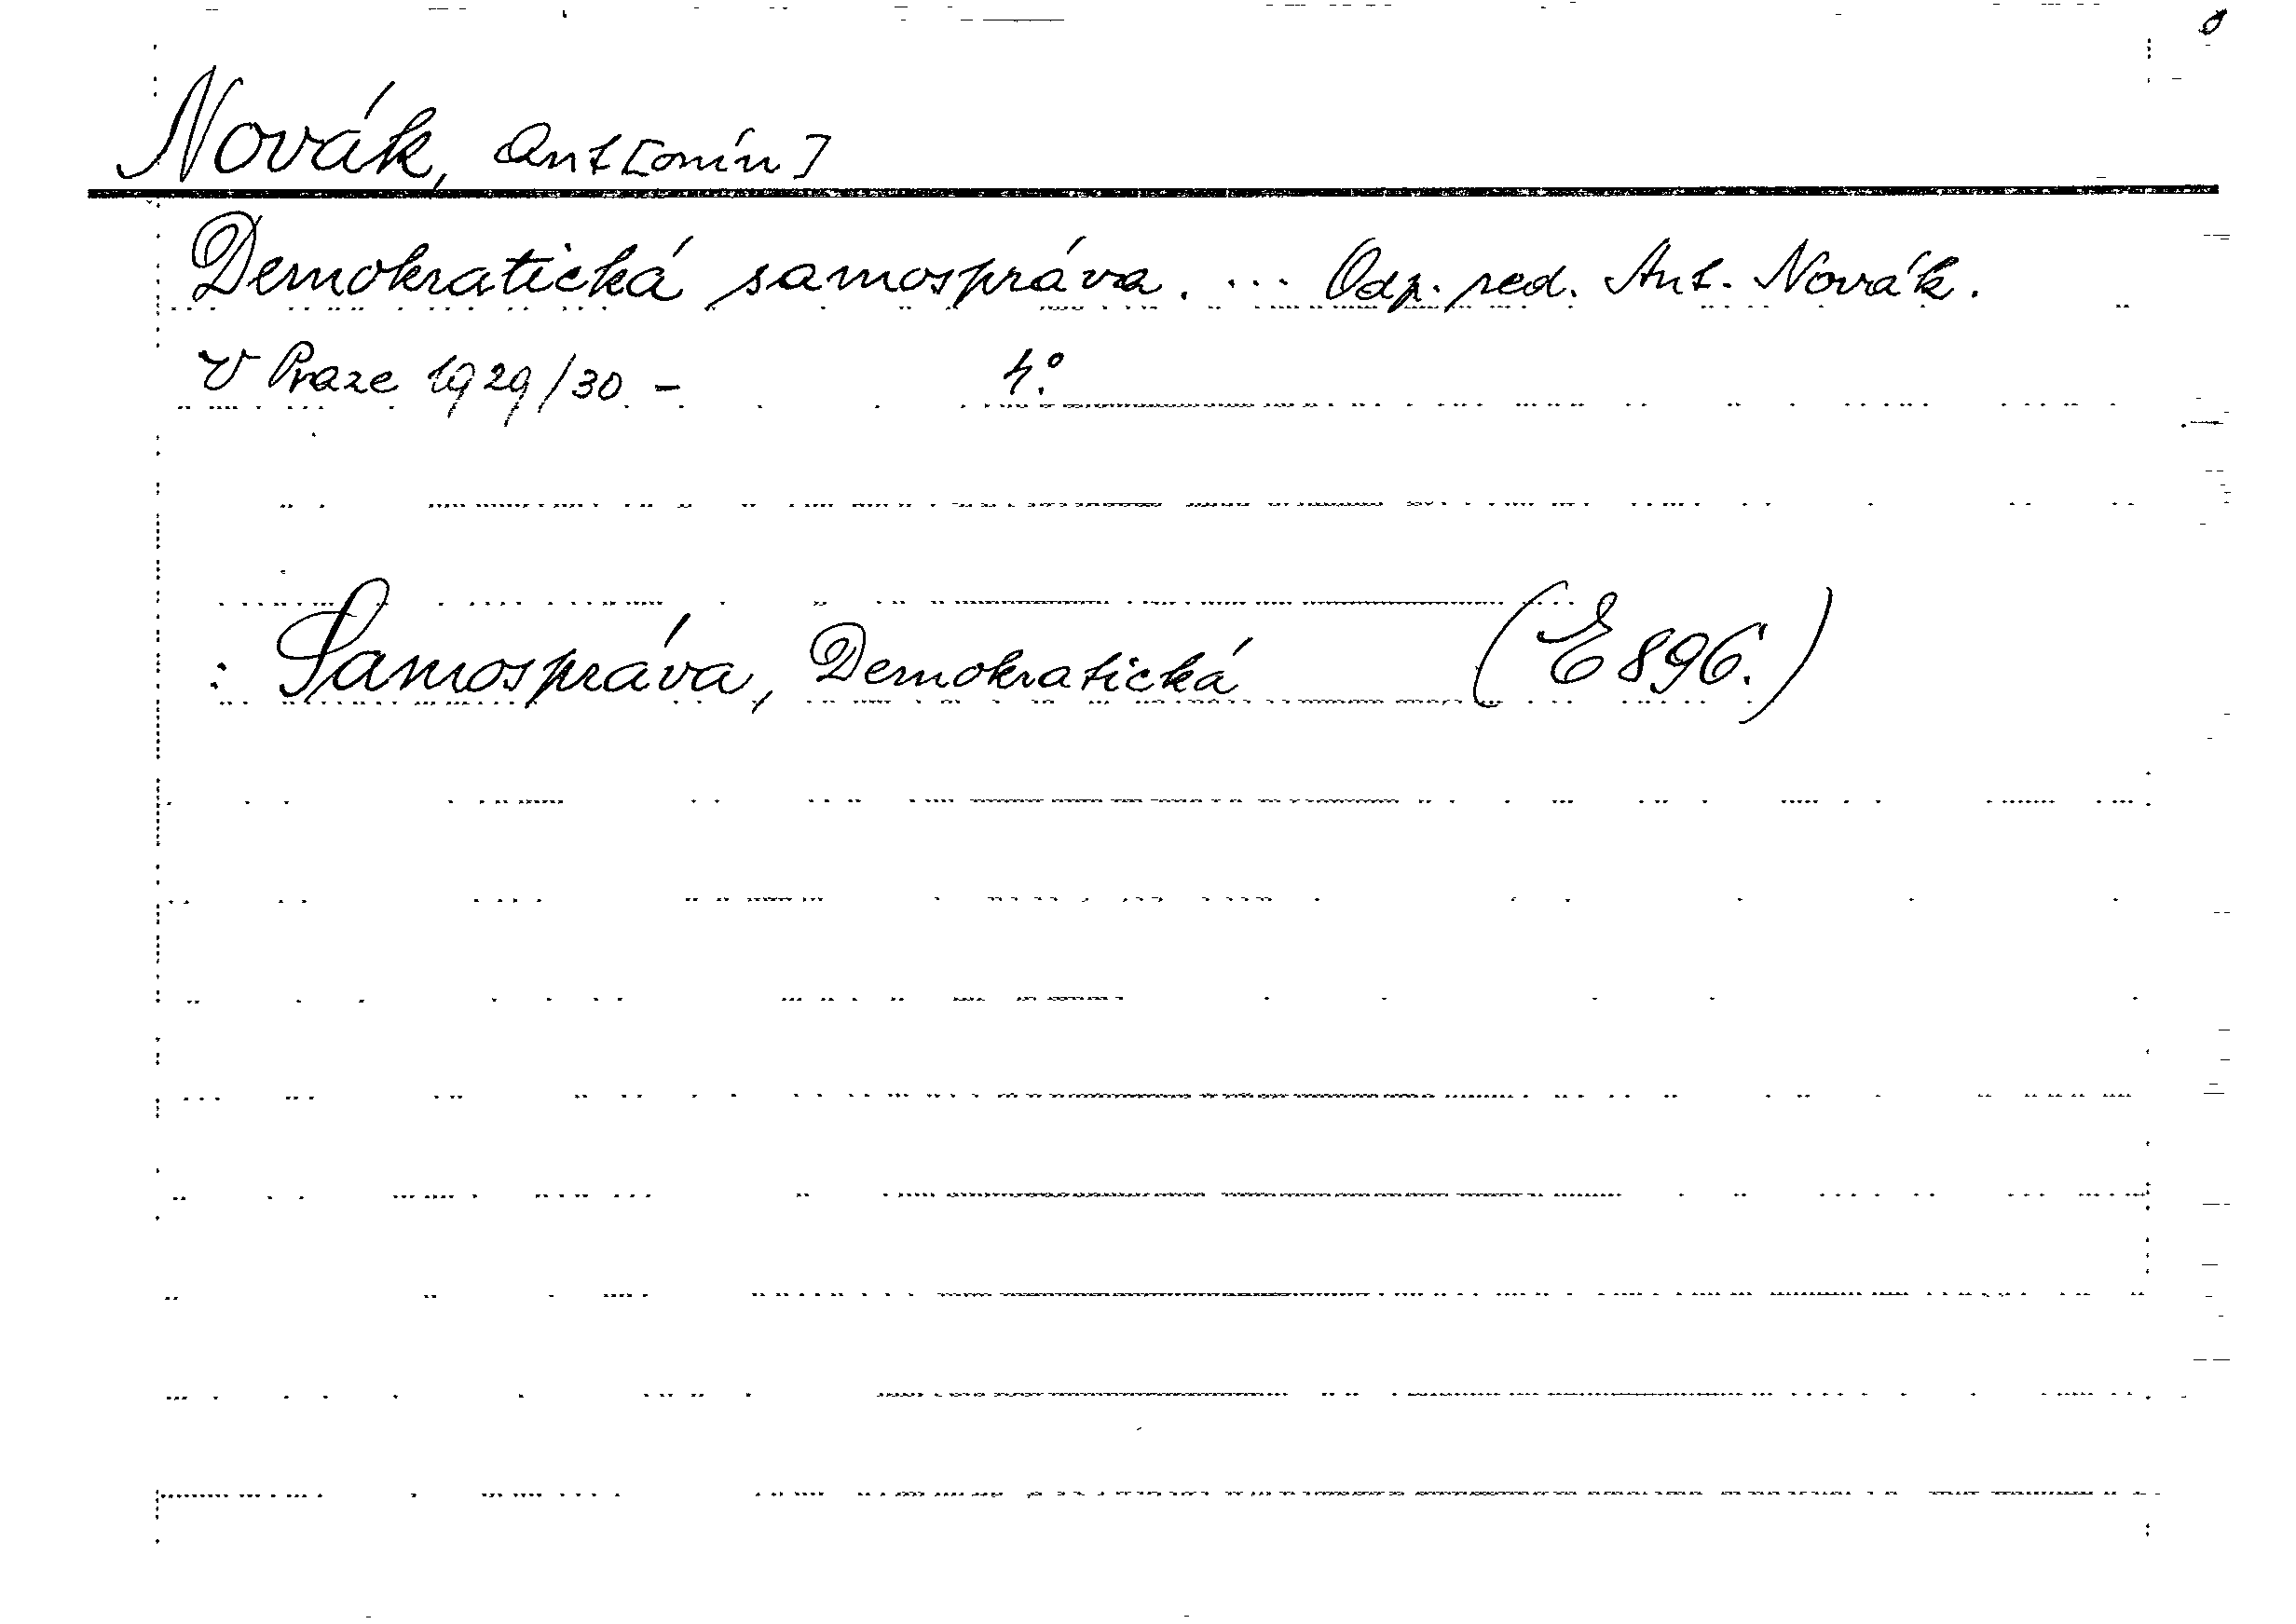 Novák, Ant[onín]
Demokratická samospráva. ... Odp. red. Ant. Novák.
V Praze 1929/30 - 4°.
: Samospráva, Demokratická (E 896.)